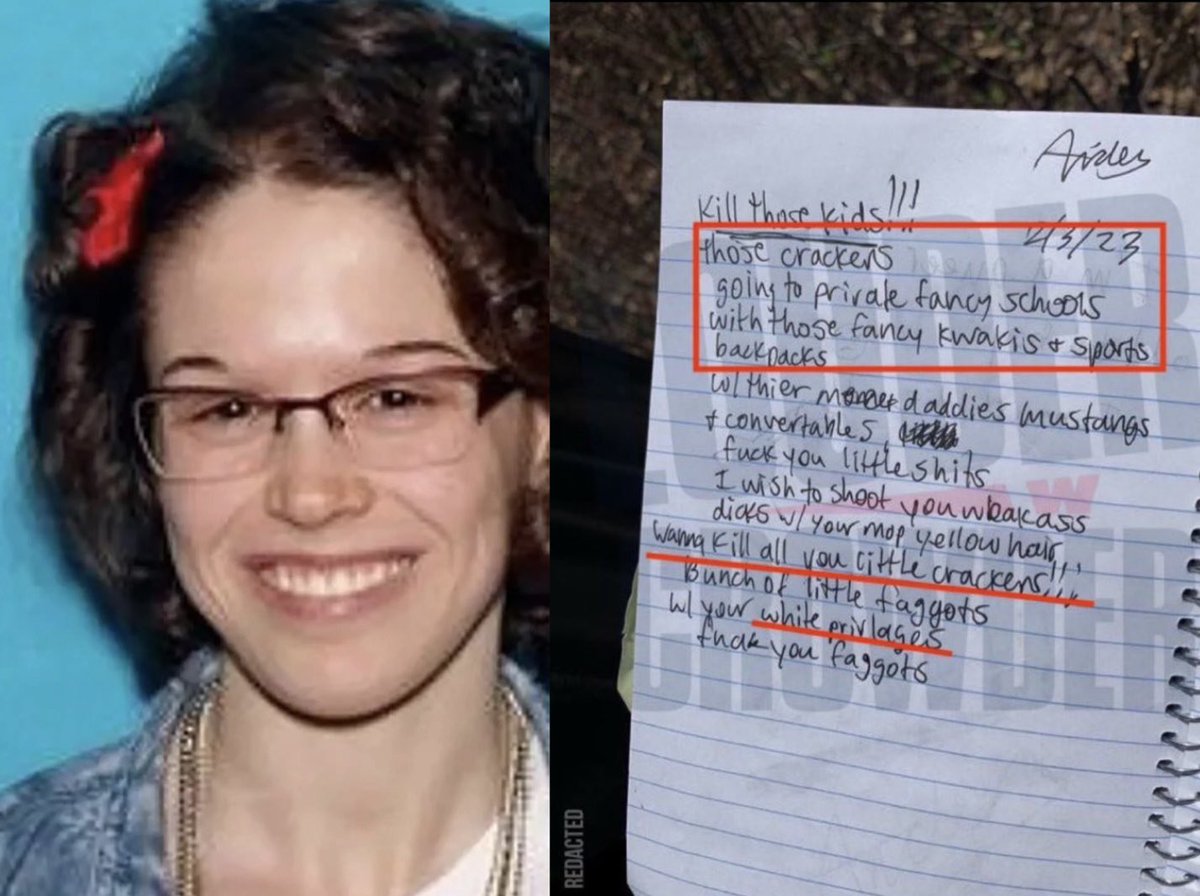 Aiden
Kill those kids!!!
2/3/23
those crackers
going to private fancy schools
with those fancy kwakis + sports
backpacks
w/ thier daddies mustangs
+ convertables,
fuck you little shits
I wish to shoot you weakass
dicks w/ your mop yellow hair,
wanna kill all you little crackers!!!
Bunch of little faggots
w/ your white privlages
fuck you faggots
LOUDER
CROWDER
REDACTED